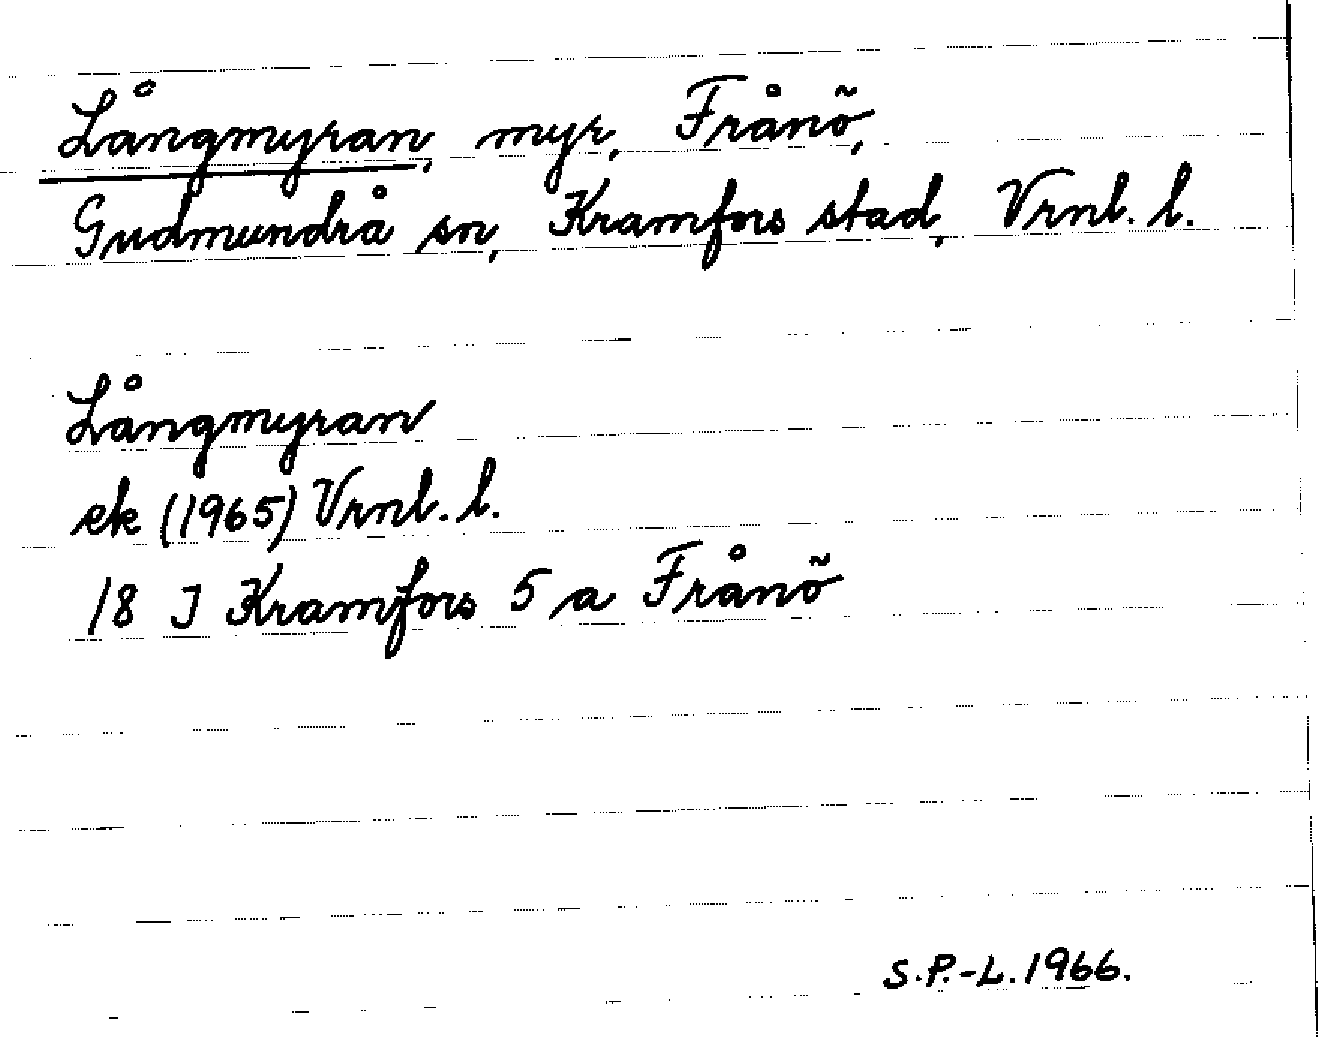 Långmyran, myr, Frånö,
Gudmundrå sn, Kramfors stad, Vrnl. l.
Långmyran
ek (1965) Vrnl. l.
18 I Kramfors 5 a Frånö
S.P.-L. 1966.